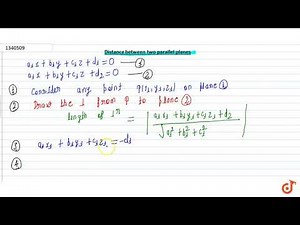 1340509
Distance between two parallel planes
a₁x + b₁y + c₁z + d₁ = 0 — ①
a₁x + b₁y + c₁z + d₂ = 0 — ②
① Consider any point P(x₁, y₁, z₁) on plane ①
② Draw the ⊥ from P to plane ②
length of ⊥ʳ = | a₁x₁ + b₁y₁ + c₁z₁ + d₂ / √(a₁² + b₁² + c₁²) |
③ a₁x₁ + b₁y₁ + c₁z₁ = -d₁
④